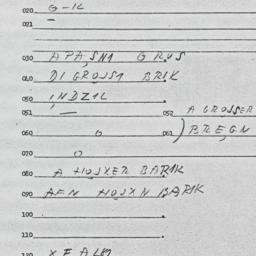 020. G-IK
021. —
030. APA,SN1 GRUS
040. DI GROUS1 BRIK
050. INDZ1L
051. — 052 A GROSSER
060. O 061 BREGN
070. O
080. A HOJXER BARIK
090. AFN HOJXN BARIK
100.
110.